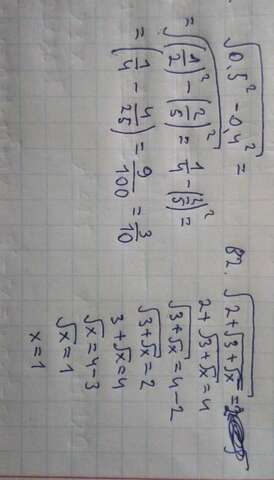 √(0,5² - 0,4²) =
= √((1/2)² - (2/5)²) = 1/4 - (2/5)² =
= (1/4 - 4/25) = 9/100 = 3/10
82. √(2 + √(3 + √x)) = 2
2 + √(3 + √x) = 4
√(3 + √x) = 4 - 2
√(3 + √x) = 2
3 + √x = 4
√x = 4 - 3
√x = 1
x = 1